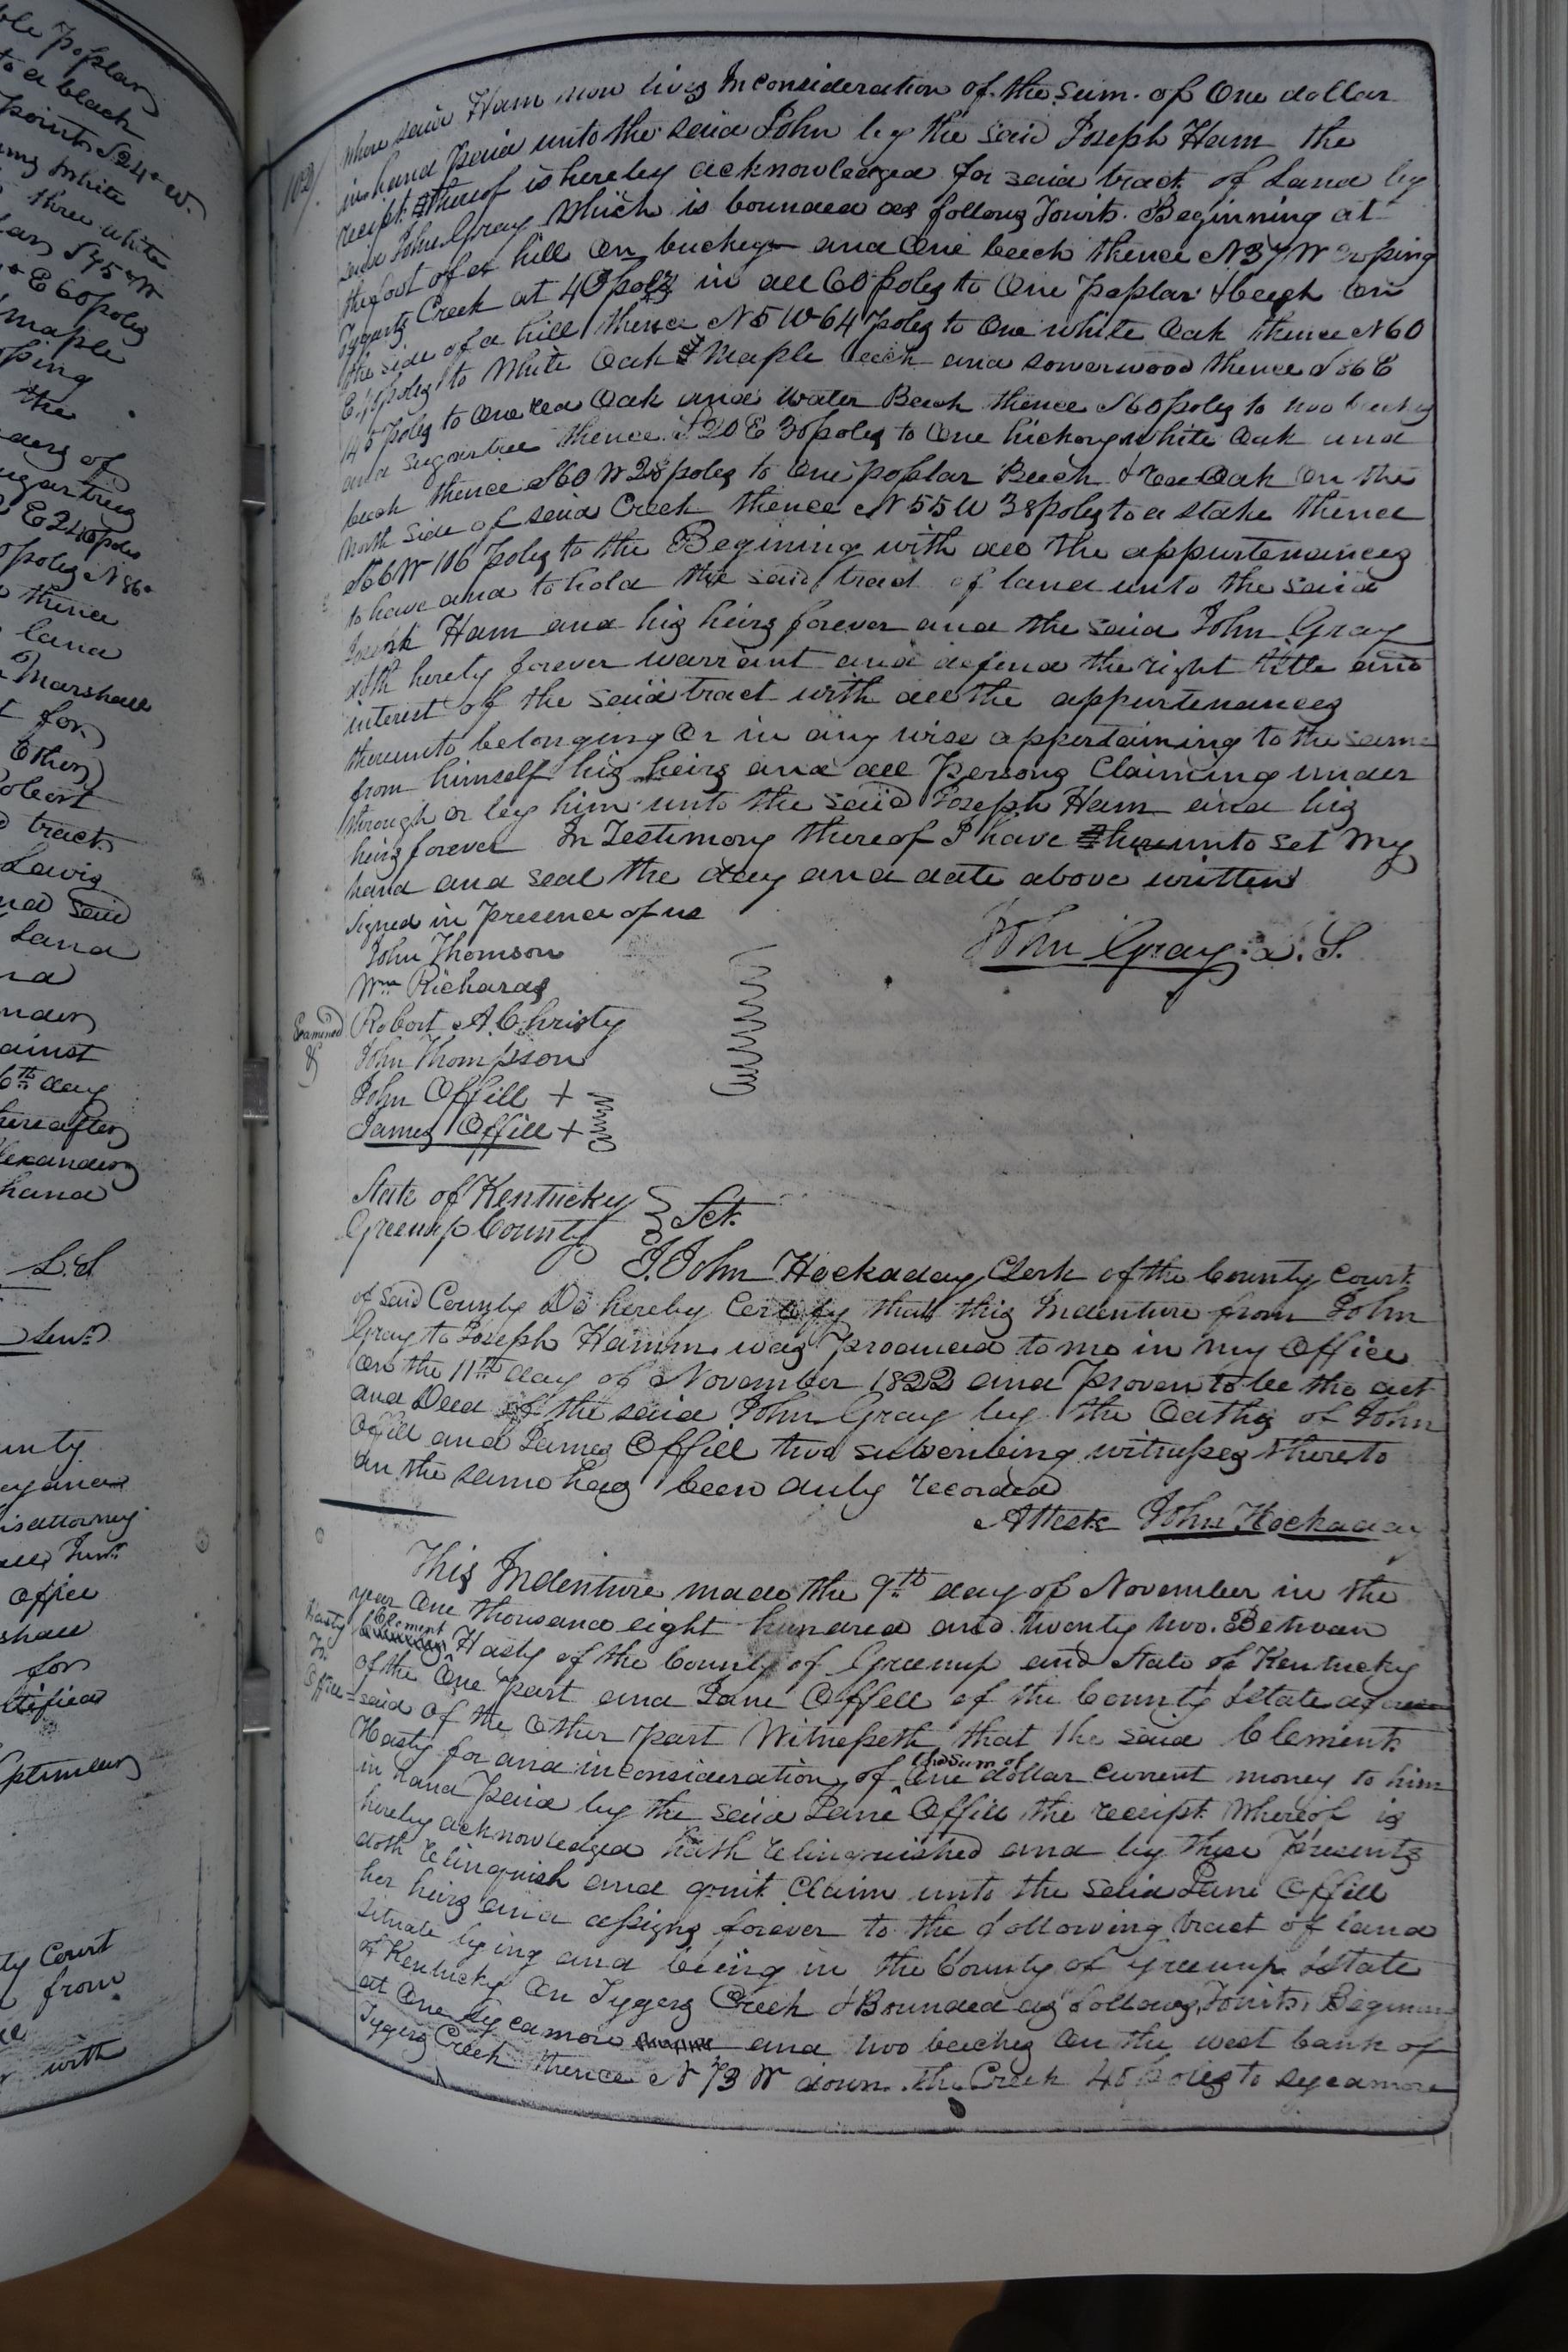 ble poplar
to a black
points S24° W.
ing white
three white
lar S45 W
E 60 poles
maple
sping
the
ders of
ugartree
E 240 poles
poles N 86°
thence
land
Marshall
t for
Other
Robert
tract
Lewis
nd said
Land
nd
nder
ainst
6th day
hereafter
lexander
hand
L.S
Junr.
unty
his attorney
Junr
Office
shall
for
tified
eptember
ty Court
from
with
where said Ham now lives In consideration of the sum of One dollar
in hand paid unto the said John by the said Joseph Ham the
receipt thereof is hereby acknowledged for said tract of Land by
said John Gray Which is bounded as follows Towit. Beginning at
the foot of a hill on buckeye and One beech thence N 37 W crosping
Tygarts Creek at 40 poles in all 60 poles to One Poplar & beech on
the side of a hill thence N 5 W 64 poles to One white Oak thence N 60
E poles to White Oak & Maple beech and sowerwood thence S 86 E
145 poles to One red Oak and water Beech thence S 60 poles to two beeches
and sugartree thence S 20 E 30 poles to One hickory white Oak and
beech thence S 60 W 28 poles to One poplar Beech & red Oak On the
North side of said Creek thence N 55 W 38 poles to a stake thence
S 66 W 106 poles to the Begining with all the appurtenances
to have and to hold the said tract of land unto the said
Joseph Ham and his heirs forever and the said John Gray
doth hereby forever warrant and defend the right title and
interest of the said tract with all the appurtenances
thereunto belonging Or in any wise appertaining to the same
from himself his heirs and all Persons Claiming under
through or by him unto the said Joseph Ham and his
heirs forever In Testimony thereof I have hereunto set my
hand and seal the day and date above written
Signed in Presence of us
John Gray L.S.
John Thomson
Wm Richards
Examined
Robert A. Christy
John Thompson
John Offill +
James Offill +
State of Kentucky
Greenup County } Sct.
I. John Hockaday Clerk of the County Court
of said County Do hereby Certify that this Indenture from John
Gray to Joseph Hamm was produced to me in my Office
on the 11th day of November 1822 and Proven to be the act
and Deed of the said John Gray by the Oaths of John
Offill and James Offill two subscribing witnesses thereto
an the same has been duly recorded
Attest John Hockaday
This Indenture made the 9th day of November in the
year One thousand eight hundred and twenty two. Between
Hasty
To
Offill
Clement
Hasty of the County of Greenup and State of Kentucky
of the One part and Jane Offill of the County & State afore
said of the Other part Witnesseth that the said Clement
Hasty for and in consideration of the sum of One dollar current money to him
in hand paid by the said Jane Offill the receipt Whereof is
hereby acknowledged hath relinquished and by these presents
doth relinquish and quit Claim unto the said Jane Offill
her heirs and assigns forever to the following tract of land
situate lying and being in the County of Greenup & State
of Kentucky On Tygers Creek & Bounded as follows, Towit. Beginn
at One Sycamore and two beeches On the west bank of
Tygers Creek thence N 73 W down the Creek 45 poles to sycamore